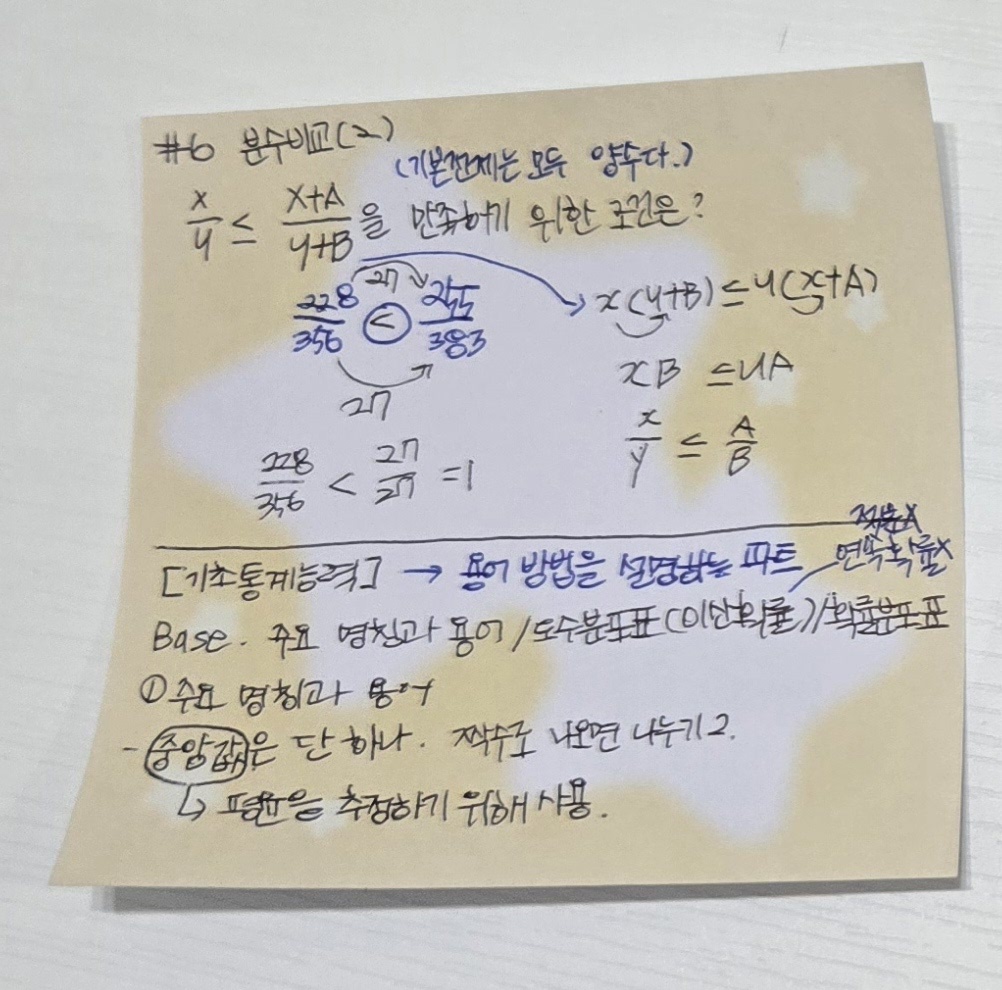 #6 분수비교(2)
(기본전제는 모두 양수다.)
x/y ≤ (x+A)/(y+B)을 만족하기 위한 조건은?
27
228/356 < 255/383
27
x(y+B) ≤ y(x+A)
xB ≤ yA
x/y ≤ A/B
228/356 < 27/27 = 1
적분X
연속확률X
[기초통계능력] → 용어 방법을 설명하는 파트
Base. 주요 명칭과 용어 / 도수분포표(이산확률) / 확률분포표
① 주요 명칭과 용어
- 중앙값은 단 하나. 짝수로 나오면 나누기 2.
↳ 평균을 추정하기 위해 사용.